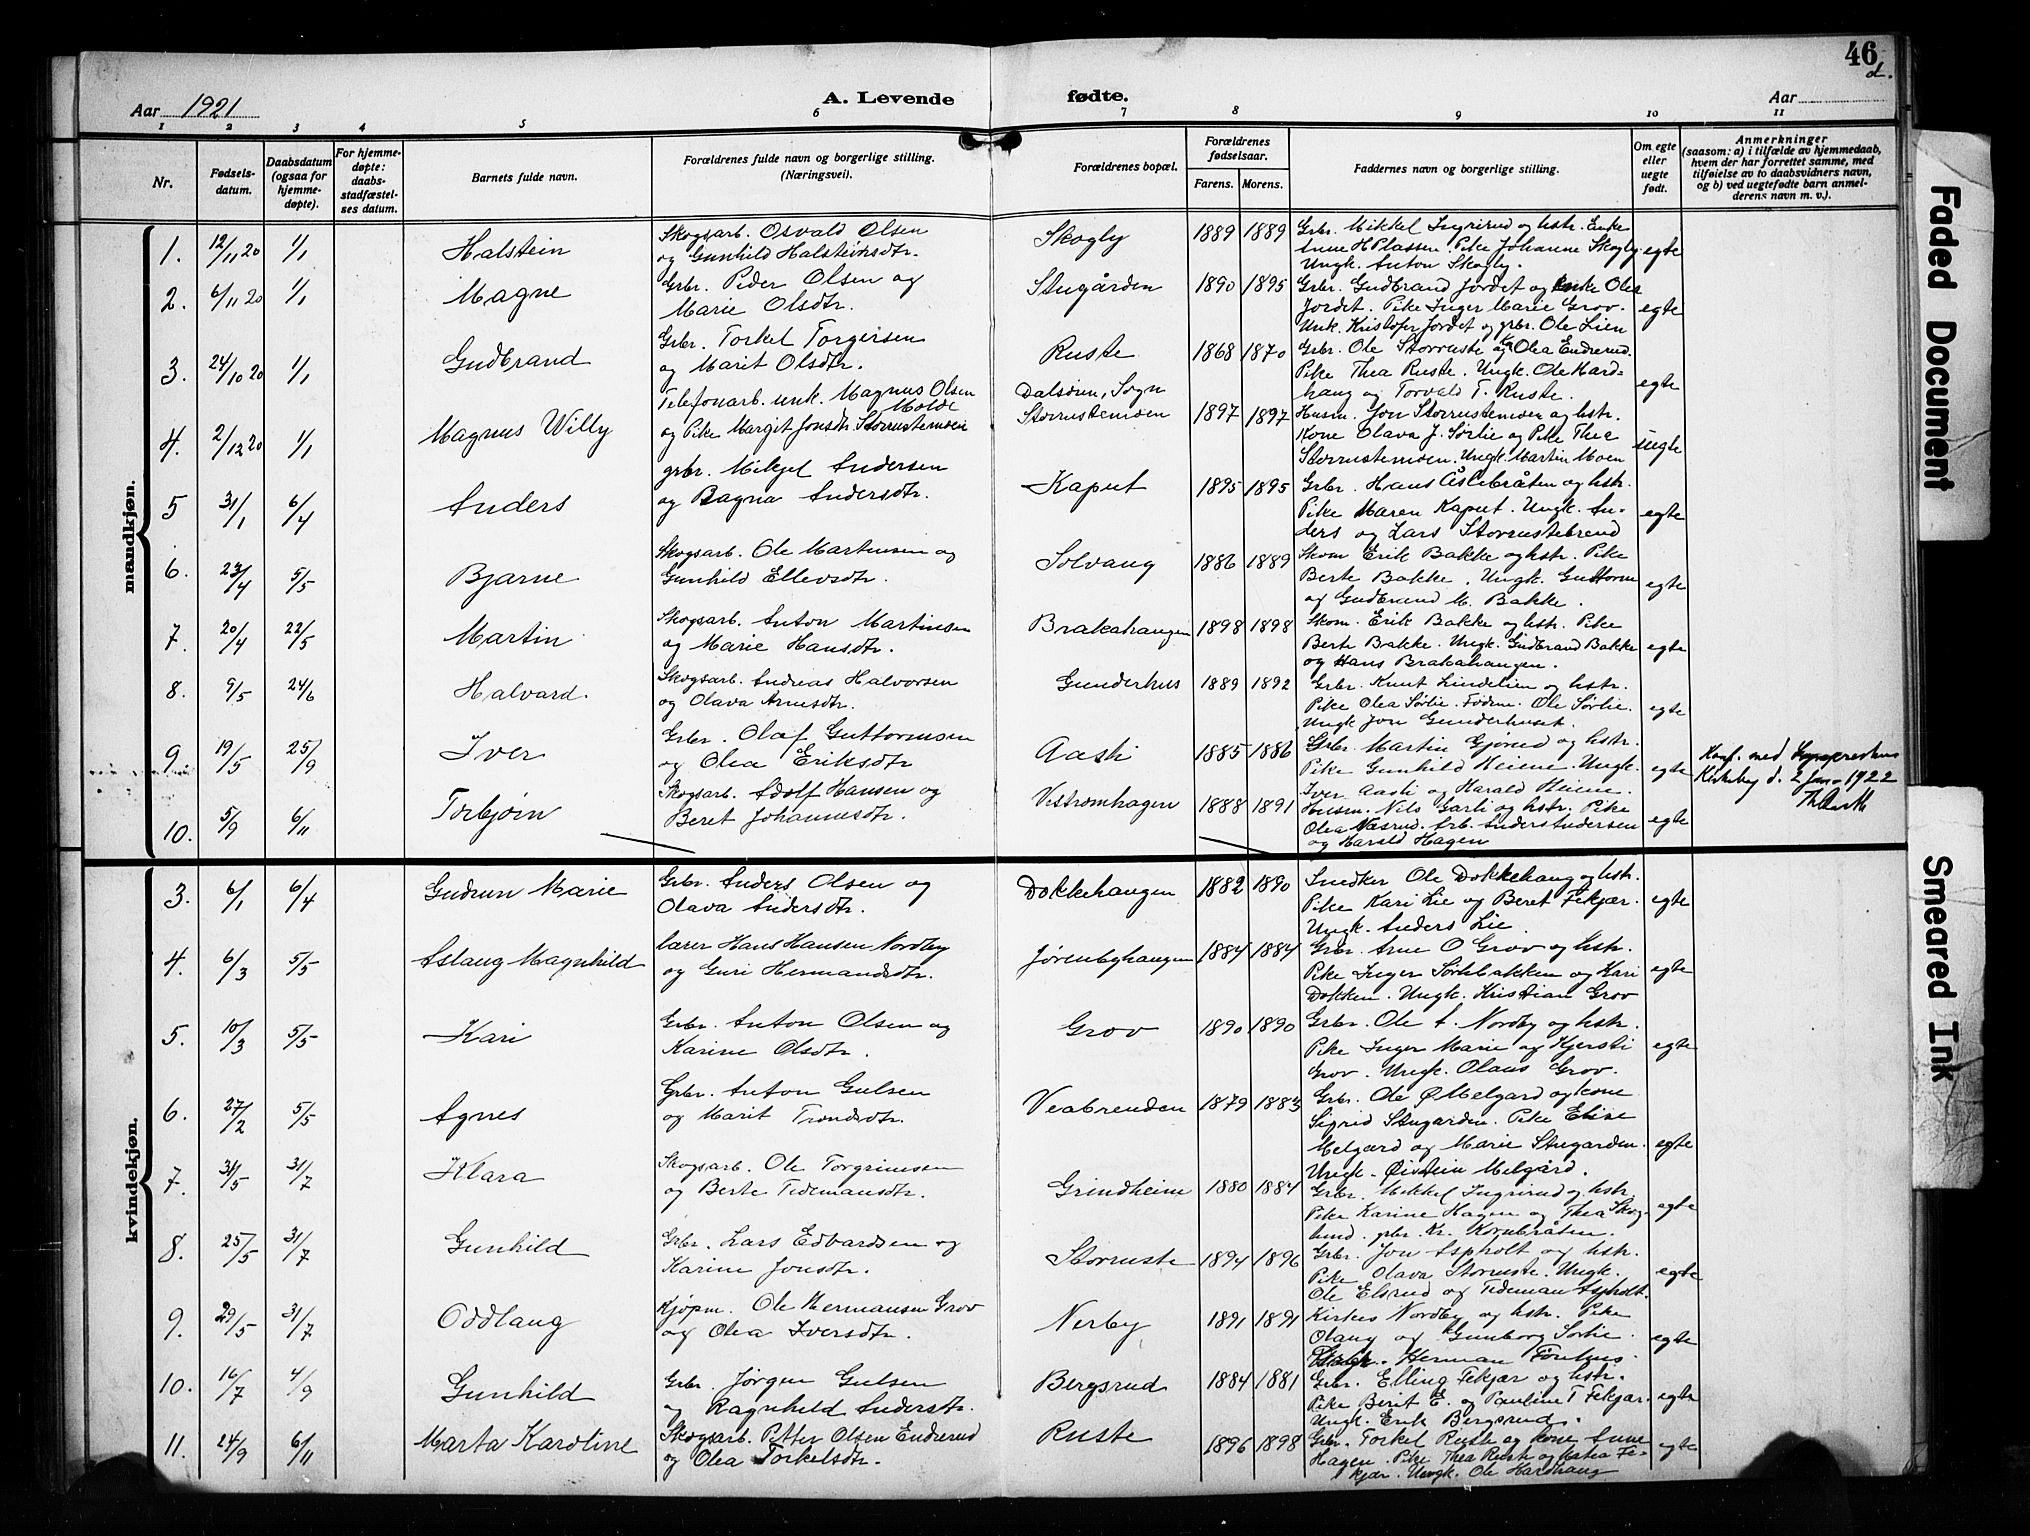 46
d.
Aar 1921
A. Levende fødte.
Aar
1 2 3 4 5 6 7 8 9 10 11
Nr.
Fødsels-
datum.
Daabsdatum
(ogsaa for
hjemme-
døpte).
For hjemme-
døpte:
daabs-
stadfæstel-
ses datum.
Barnets fulde navn.
Forældrenes fulde navn og borgerlige stilling.
(Næringsvei).
Forældrenes bopæl.
Forældrenes
fødselsaar.
Farens. Morens.
Faddernes navn og borgerlige stilling.
Om egte
eller
uegte
født.
Anmerkninger
(saasom: a) i tilfælde av hjemmedaab,
hvem der har forrettet samme, med
tilføielse av to daabsvidners navn,
og b) ved uegtefødte barn anmel-
derens navn m. v.).
mandkjøn.
1. 12/11 20 1/1 Halstein
Skogsarb. Osvald Olsen
og Gunhild Halsteinsdtr.
Skogly 1889 1889
Grbr. Mikkel Ingrirud og hstr. Enke
Anne H Plassen. Pike Johanne Skogly
Ungk. Anton Skogly.
egte
2. 6/11 20 1/1 Magne
Grbr. Peder Olsen og
Marie Olsdtr.
Stugården 1890 1895
Grbr. Gudbrand Jordet og enke Olea
Jordet. Pike Inger Marie Grov.
Unk. Kristofer Jordet og grbr. Ole Lien
egte
3. 24/10 20 1/1 Gudbrand
Grbr. Torkel Torgersen
og Marit Olsdtr.
Ruste 1868 1870
Grbr. Ole Storruste og k. Olea Endrerud.
Pike Thea Ruste. Ungk. Ole Hard-
haug og Torvald T. Ruste.
egte
4. 2/12 20 1/1 Magnus Willy
Telefonarb. unk. Magnus Olsen
Molde
og Pike Margit Jonsdtr. Storrustemoen
Dalsøren, Sogn
Storrustemoen 1897 1897
Husm. Jon Storrustemoen og hstr.
Kone Olava J. Sørlie og Pike Thea
Storrustemoen. Ungk. Martin Moen
uegte
5 31/1 6/4 Anders
grbr. Mikjel Andersen
og Ragna Andersdtr.
Kaput 1895 1895
Grbr. Hans Åslebråten og hstr.
Pike Maren Kaput. Ungk. An-
ders og Lars Storrustebrend
egte
6. 23/4 5/5 Bjarne
Skogsarb. Ole Martinsen og
Gunhild Ellevsdtr.
Solvang 1886 1889
Skom Erik Bakke og hstr. Pike
Berte Bakke. Ungk. Guttorm
og Gudbrand M. Bakke.
egte
7. 20/4 22/5 Martin
Skogsarb. Anton Martinsen
og Marie Hansdtr.
Brakahaugen 1898 1898
Skom. Erik Bakke og hstr. Pike
Berte Bakke. Ungk. Gudbrand Bakke
og Hans Brakahaugen.
egte
8. 9/5 24/6 Halvard.
Skogsarb. Andreas Halvorsen
og Olava Arnesdtr.
Gunderhus 1889 1892
Grbr. Knut Lindelien og hstr.
Pike Olea Sørlie. Føderm. Ole Sørlie.
Ungk Jon Gunderhuset.
egte
9. 19/5 25/9 Iver
Grbr. Olaf Guttormsen
og Olea Eriksdtr
Aasli 1885 1886
Grbr. Martin Gjørud og hstr.
Pike Gunhild Heiene. Ungk.
Iver Aasli og Harald Heiene.
egte
Konf. med Sogneprestens
Kirkebog d. 2 jan. 1922
10. 5/9 6/11 Torbjørn
Skogsarb. Adolf Hansen og
Beret Johannesdtr.
Vestromhagen 1888 1891
Husm. Nils Garli og hstr. Pike
Olea Næsrud. Arb. Anders Andersen
og Harald Hagen
egte
kvindekjøn.
3. 6/1 6/4 Gudrun Marie
Grbr. Anders Olsen og
Olava Andersdtr.
Dokkehaugen 1882 1890
Snedker Ole Dokkehaug og hstr.
Pike Kari Lie og Beret Fekjær.
Ungk. Anders Lie.
egte
4. 6/3 5/5 Aslaug Magnhild
lærer Hans Hansen Nordby
og Guri Hermandsdtr.
Jørenbyhaugen 1884 1884
Grbr. Arne O Grov og hstr.
Pike Inger Sørbakken og Kari
Dokken. Ungk. Kristian Grov
egte
5. 10/3 5/5 Kari
Grbr. Anton Olsen og
Karine Olsdtr.
Grov 1890 1890
Grbr. Ole A. Nordby og hstr.
Pike Inger Marie og Kjersti
Grov. Ungk. Olaus Grov.
egte
6. 27/2 5/5 Agnes
Grbr. Anton Gulsen
og Marit Trondsdtr.
Veabrenden 1879 1883
Grbr. Ole Ø Melgard og kone
Sigrid Stugarden. Pike Eline
Melgård og Marie Stugarden.
Ungk. Øistein Melgård.
egte
7. 31/5 31/7 Klara
Skogsarb. Ole Torgrimsen
og Berte Tidemansdtr.
Grindheim 1880 1884
Grbr. Mikkel Ingrirud og hstr.
Pike Karine Hagen og Thea Skog-
lund. grbr. Kr. Kornbråten.
egte
8. 25/5 31/7 Gunhild
Grbr. Lars Edvardsen og
Karine Jonsdtr.
Storruste 1894 1896
Grbr. Jon Aspholt og hstr.
Pike Olava Storruste. Ungk.
Ole Elsrud og Tideman Aspholt.
egte
9. 29/5 31/7 Oddlaug
Kjøpm. Ole Hermansen Grov
og Olea Iversdtr.
Nerby 1891 1891
Kirkes Nordby og hstr. Pike
Olaug og Gunborg Sørlie.
Ungk. Herman Fønhus.
egte
10. 16/7 4/9 Gunhild
Grbr. Jørgen Gulsen
og Ragnhild Anderstr.
Bergsrud 1884 1881
Grbr. Elling Fekjær og hstr.
Pike Berit E. og Pauline T Fekjær.
Ungk. Erik Bergsrud.
egte
11. 24/9 6/11 Marta Karoline
Skogsarb. Petter Olsen Endrerud
og Olea Torkelsdtr.
Ruste 1896 1898
Grbr. Torkel Ruste og kone Anne
Hagen. Pike Thea Ruste og Katia Fe-
kjær. Ungk. Ole Hardhaug
egte
Faded Document
Smeared Ink